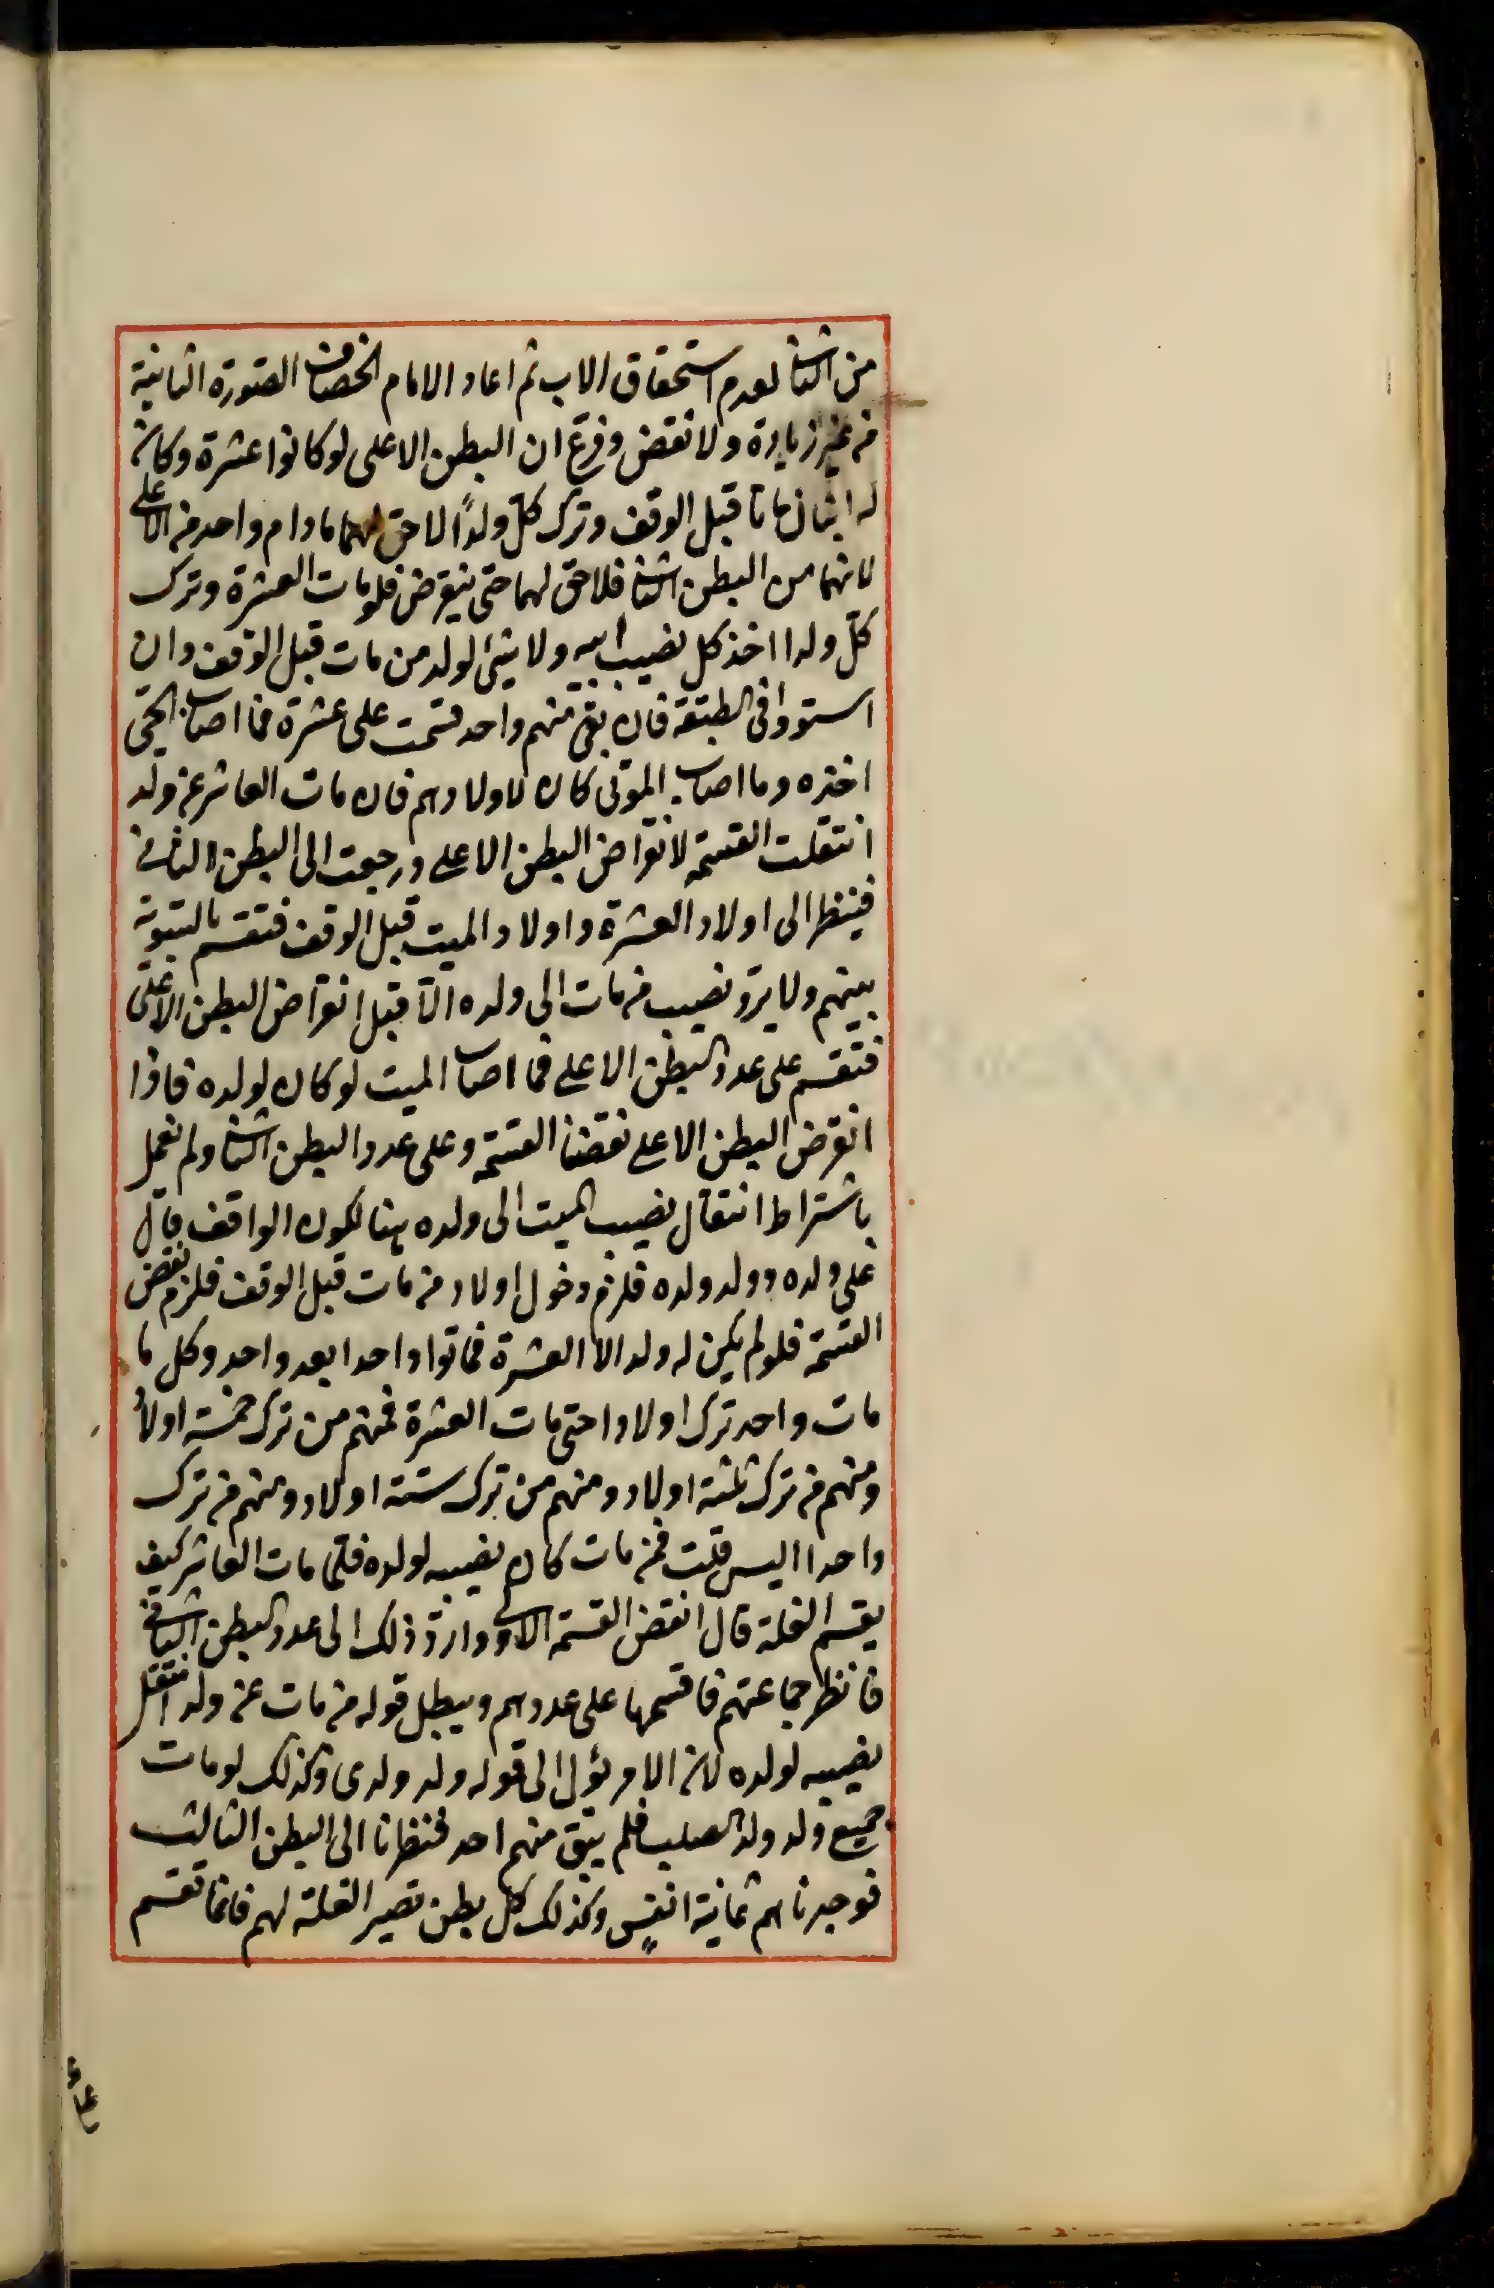 من الثانى لعدم استحقاق الاب ثم اعاد الامام الخصاف الصورة الثانية
من غير زيادة ولا نقض وفرع ان البطن الاعلى لو كانوا عشرة وكان
له ابنان ماتا قبل الوقف وترك كلّ ولدًا لا حق لهما مادام واحد من الاعلى
لانهما من البطن الثانى فلا حق لهما حتى ينقرض فلو مات العشرة وترك
كلّ ولدا اخذ كل نصيب ابيه ولا شئ لولد من مات قبل الوقف وان
استووا فى الطبقة فان بقى منهم واحد قسمت على عشرة فما اصاب الحى
اخذه وما اصاب الموتى كان لاولادهم فان مات العاشر عن ولد
انتقلت القسمة لانقراض البطن الاعلى ورجعت الى البطن الثانى
فينظر الى اولاد العشرة واولاد الميت قبل الوقف فتقسم بالسوية
بينهم ولا يردّ نصيب من مات الى ولده الّا قبل انقراض البطن الاعلى
فتقسم على عدد البطن الاعلى فما اصاب الميت لو كان لولده فاذا
انقرض البطن الاعلى نقضنا القسمة وعلى عدد البطن الثانى ولم نعمل
باشتراط انتقال نصيب الميت الى ولده هنا لكون الواقف قال
على ولده وولد ولده فلزم دخول اولاد من مات قبل الوقف فلزم نقض
القسمة فلو لم يكن له ولد الا العشرة فماتوا واحدا بعد واحد وكل ما
مات واحد ترك اولادا حتى مات العشرة فمنهم من ترك خمسة اولاد
ومنهم من ترك ثلثة اولاد ومنهم من ترك ستة اولاد ومنهم من ترك
واحدا اليس قلت فمن مات كان نصيبه لولده فلما مات العاشر كيف
يقسم الغلة قال انقض القسمة الاولى وارد ذلك الى عدد البطن الثانى
فانظر جماعتهم فاقسمها على عددهم ويبطل قوله من مات عن ولد انتقل
نصيبه لولده لان الامر يؤل الى قوله ولد ولدى وكذلك لو مات
جميع ولد ولد الصلب فلم يبق منهم احد فنظرنا الى البطن الثالث
فوجدناهم ثمانية انفس وكذلك كل بطن تصير الغلة لهم فانما تقسم